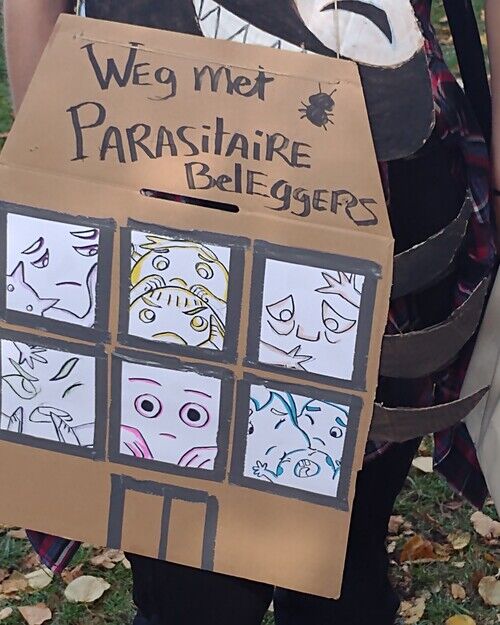 Weg met
PARASitAiRE
BelEggERS